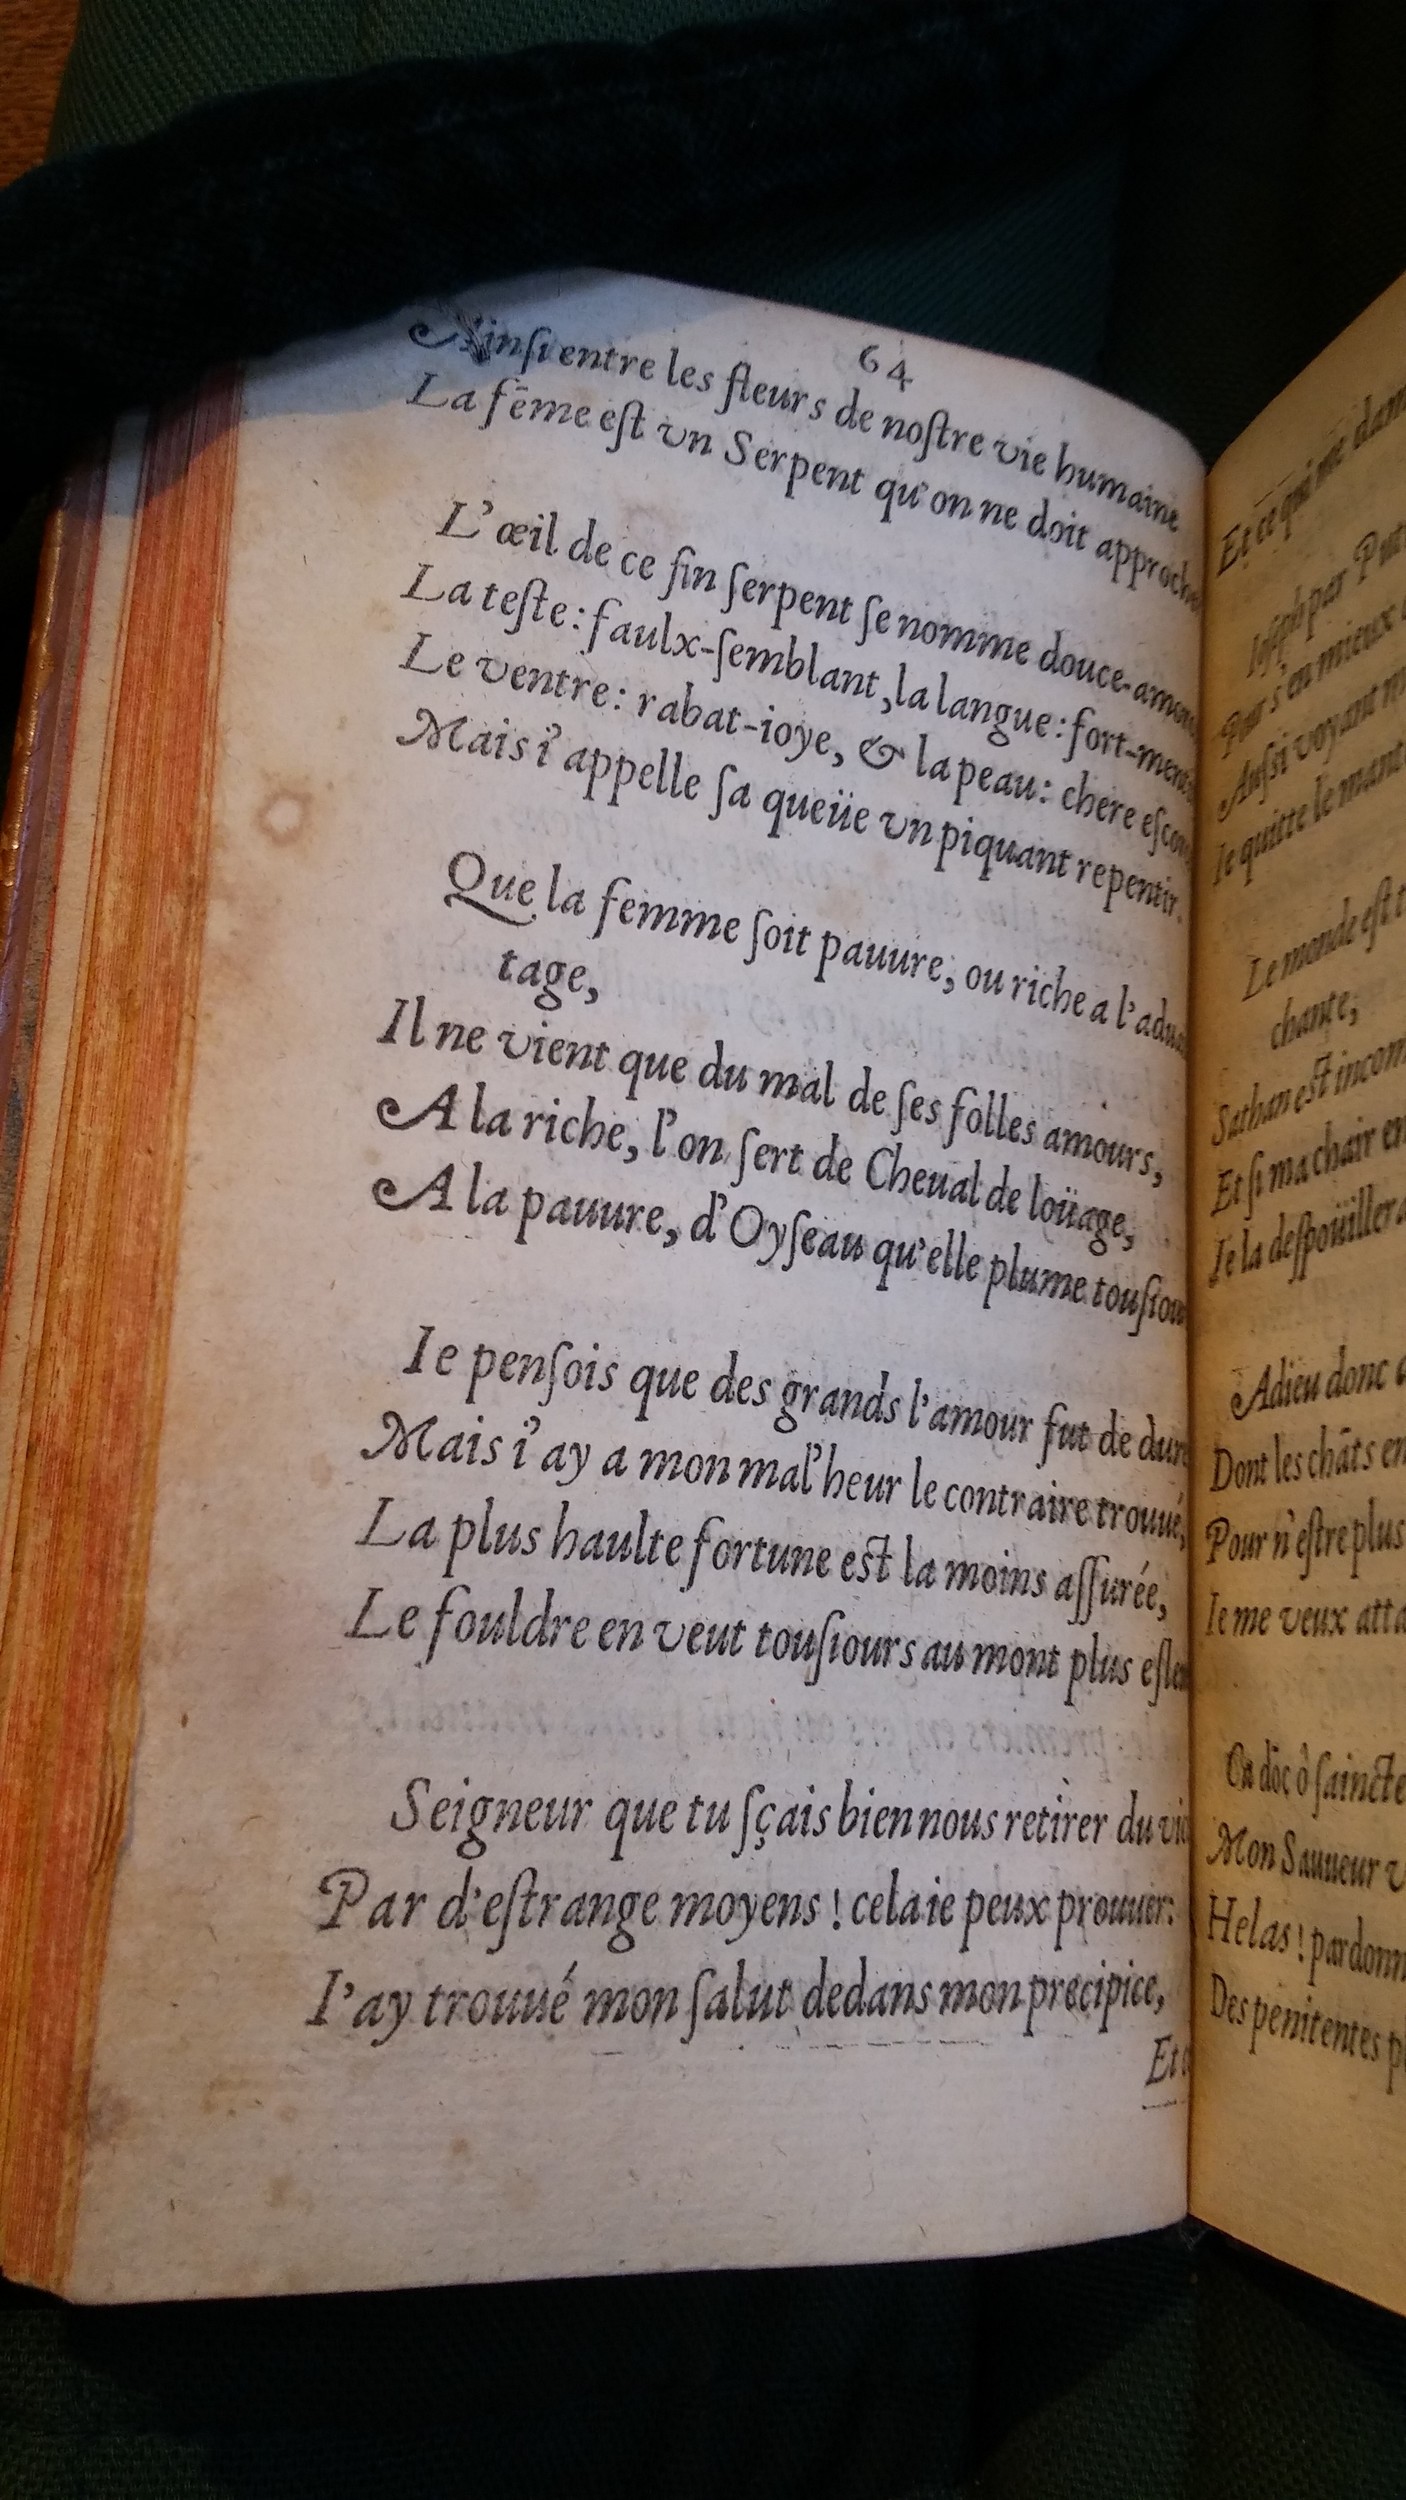 64
Ainſi entre les fleurs de noſtre vie humaine
La fẽme eſt vn Serpent qu'on ne doit
L'œil de ce fin ſerpent ſe nomme
La teſte: faulx-ſemblant, la langue:
Le ventre: rabat-ioye, & la peau: chere
Mais i'appelle ſa queüe vn piquant repentir.
Que la femme ſoit pauure, ou riche a
tage,
Il ne vient que du mal de ſes folles amours,
A la riche, l'on ſert de Cheual de loüage,
A la pauure, d'Oyſeau qu'elle plume
Ie penſois que des grands l'amour fut de
Mais i'ay a mon mal'heur le contraire trouué,
La plus haulte fortune est la moins aſſurée,
Le fouldre en veut touſiours au mont plus
Seigneur que tu ſçais bien nous retirer du
Par d'eſtrange moyens ! cela ie peux prouuer:
I'ay trouué mon ſalut dedans mon precipice,
Et
Et ce qui me
Ioſeph par
Pour s'en mieux
Auſſi voyant
Ie quitte le
Le monde eſt
chante,
Sathan est
Et ſi ma chair
Ie la
Adieu donc
Dont les chãts
Pour n'eſtre plus
Ie me veux
dõc ô ſaincte
Mon Sauueur
Helas !
Des penitentes